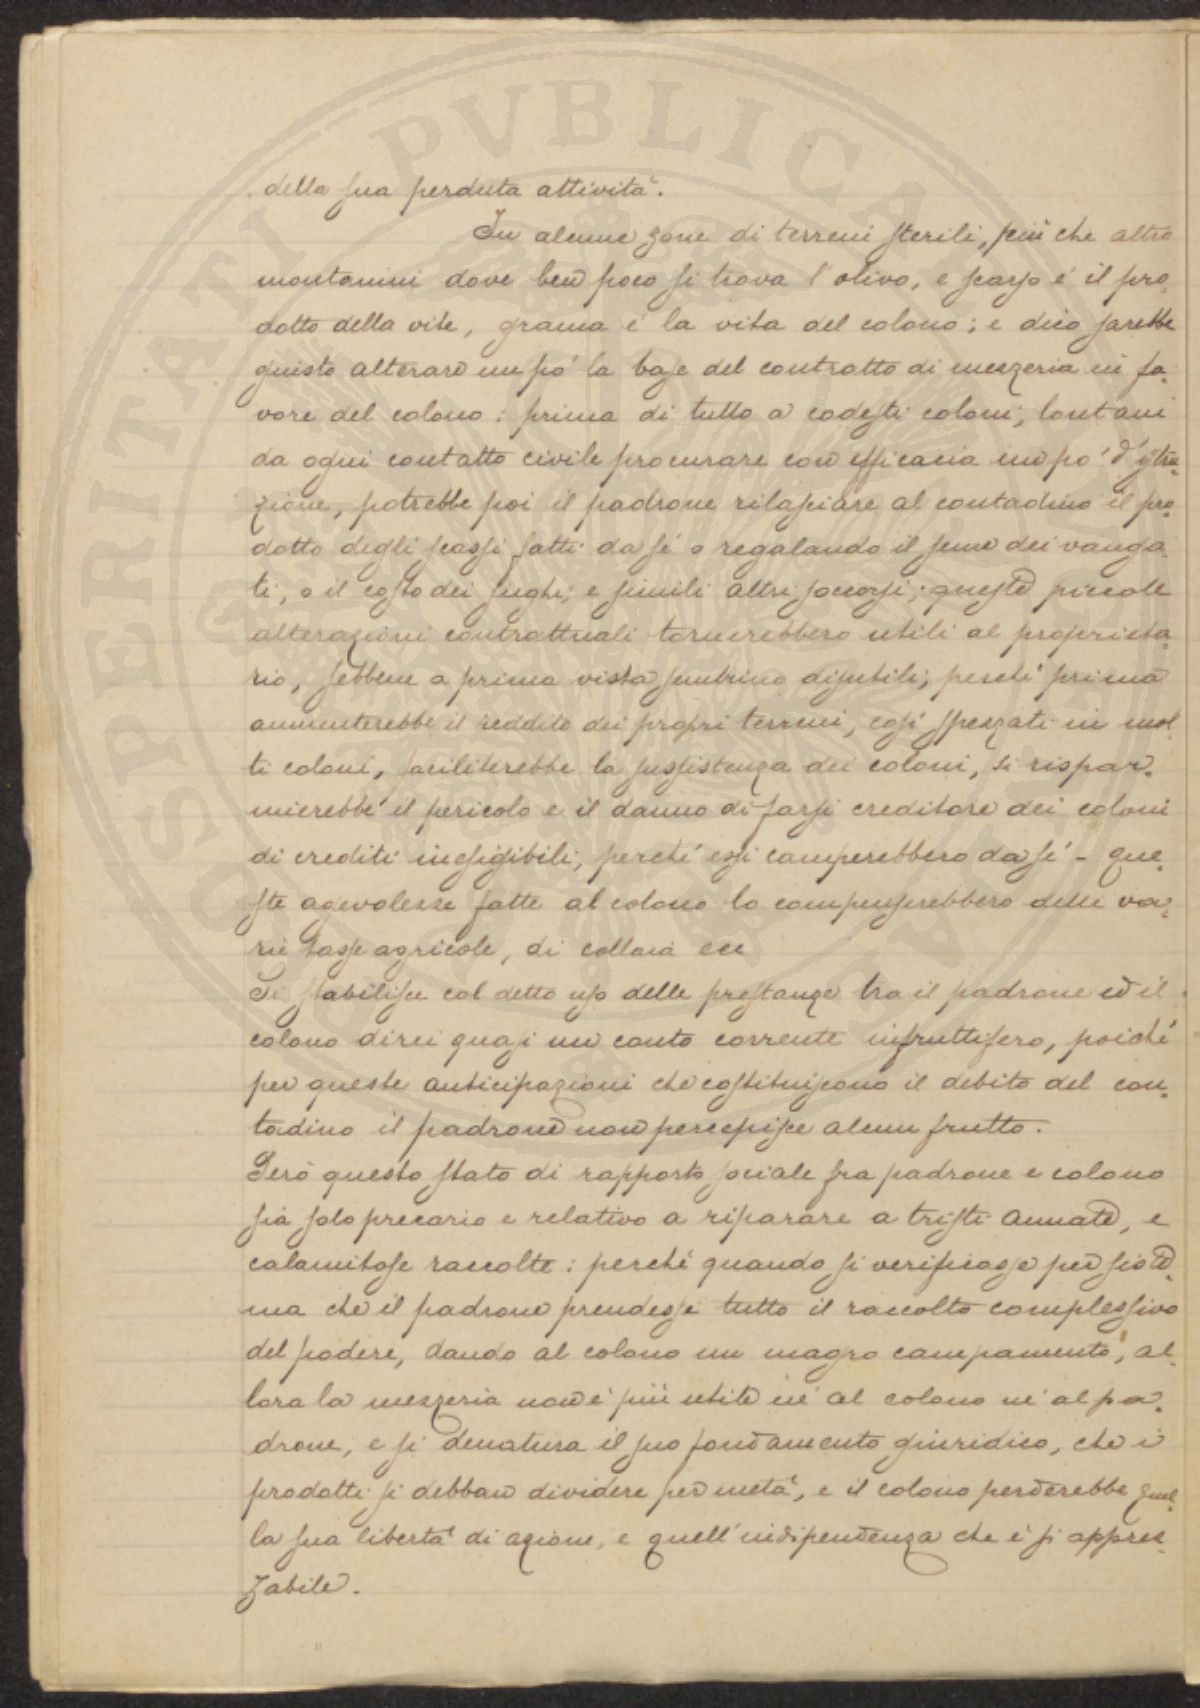 della sua perduta attività.
In alcune zone di terreni sterili, più che altro
montanini dove ben poco si trova l'olivo, e scarso é il pro-
dotto della vite, grama é la vita del colono; e dico sarebbe
giusto alterare un pó la base del contratto di mezzeria in fa-
vore del colono: prima di tutto a codesti coloni, lontani
da ogni contatto civile procurare con efficacia un pó d'istru-
zione, potrebbe poi il padrone rilasciare al contadino il pro-
dotto degli scassi fatti da sé o regalando il seme dei vanga-
ti, o il costo dei sughi, e simili altri soccorsi; queste piccole
alterazioni contrattuali tornerebbero utili al proprieta-
rio, sebbene a prima vista sembrino disutili; perché prima
aumenterebbe il reddito dei propri terreni, così spezzati in mol-
ti coloni, faciliterebbe la sussistenza dei coloni, si rispar-
mierebbe il pericolo e il danno di farsi creditore dei coloni
di crediti inesigibili, perché essi camperebbero da sé - que-
ste agevolezze fatte al colono lo compenserebbero delle va-
rie tasse agricole, di collaia ecc
Si stabilisce col detto uso delle prestanze tra il padrone ed il
colono direi quasi un conto corrente infruttifero, poiché
per queste anticipazioni che costituiscono il debito del con-
tadino il padrone non percepisce alcun frutto.
Però questo stato di rapporto sociale fra padrone e colono
sia solo precario e relativo a riparare a tristi annate, e
calamitose raccolte: perché quando si verificasse per siste-
ma che il padrone prendesse tutto il raccolto complessivo
del podere, dando al colono un magro campamento, al-
lora la mezzeria non é più utile né al colono né al pa-
drone, e si denatura il suo fondamento giuridico, che i
prodotti si debban dividere per metà, e il colono perderebbe quel-
la sua libertà di azione, e quell'indipendenza che é sì apprez-
zabile.
SOSPERITATI PVBLICAE AV